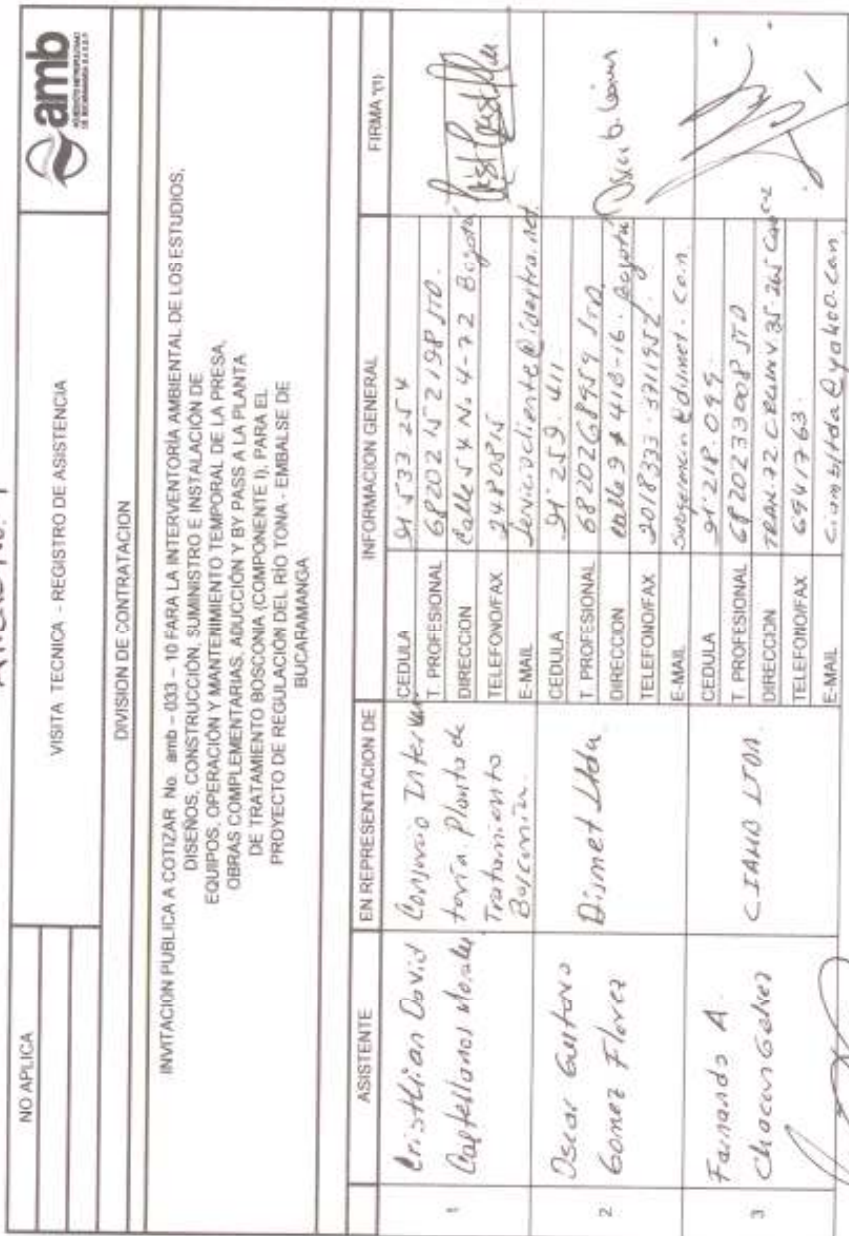 NO APLICA
VISITA TECNICA - REGISTRO DE ASISTENCIA
amb
DIVISION DE CONTRATACION
INVITACION PUBLICA A COTIZAR No. amb - 033 - 10 PARA LA INTERVENTORÍA AMBIENTAL DE LOS ESTUDIOS,
DISEÑOS, CONSTRUCCIÓN, SUMINISTRO E INSTALACIÓN DE
EQUIPOS, OPERACIÓN Y MANTENIMIENTO TEMPORAL DE LA PRESA,
OBRAS COMPLEMENTARIAS, ADUCCIÓN Y BY PASS A LA PLANTA
DE TRATAMIENTO BOSCONIA (COMPONENTE I), PARA EL
PROYECTO DE REGULACIÓN DEL RÍO TONA - EMBALSE DE
BUCARAMANGA
ASISTENTE
EN REPRESENTACION DE
INFORMACION GENERAL
FIRMA *(1)
1
Cristhian David
Castellanos Morales
Consorcio Interven
toría Planta de
Tratamiento
Bosconia.
CEDULA 91'533.254
T. PROFESIONAL 68202152198 STD.
DIRECCION Calle 54 No. 4-72 Bogotá
TELEFONO/FAX 2480815
E-MAIL
2
Oscar Gustavo
Gomez Florez
Dismet Ltda
CEDULA 91'259.411
T. PROFESIONAL 6820268959 STD
DIRECCION Calle 9 # 41B-16. Bogotá
TELEFONO/FAX 2018333 - 3711952.
E-MAIL
3
Fernando A.
Chacon Galvez
CIAMB LTDA.
CEDULA 91'218.099.
T. PROFESIONAL 6820233008 STD
DIRECCION
TELEFONO/FAX 6941763.
E-MAIL ciambltda@yahoo.com